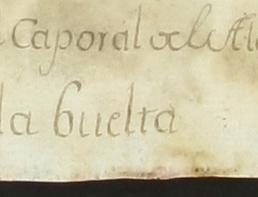 Caporal del
la buelta